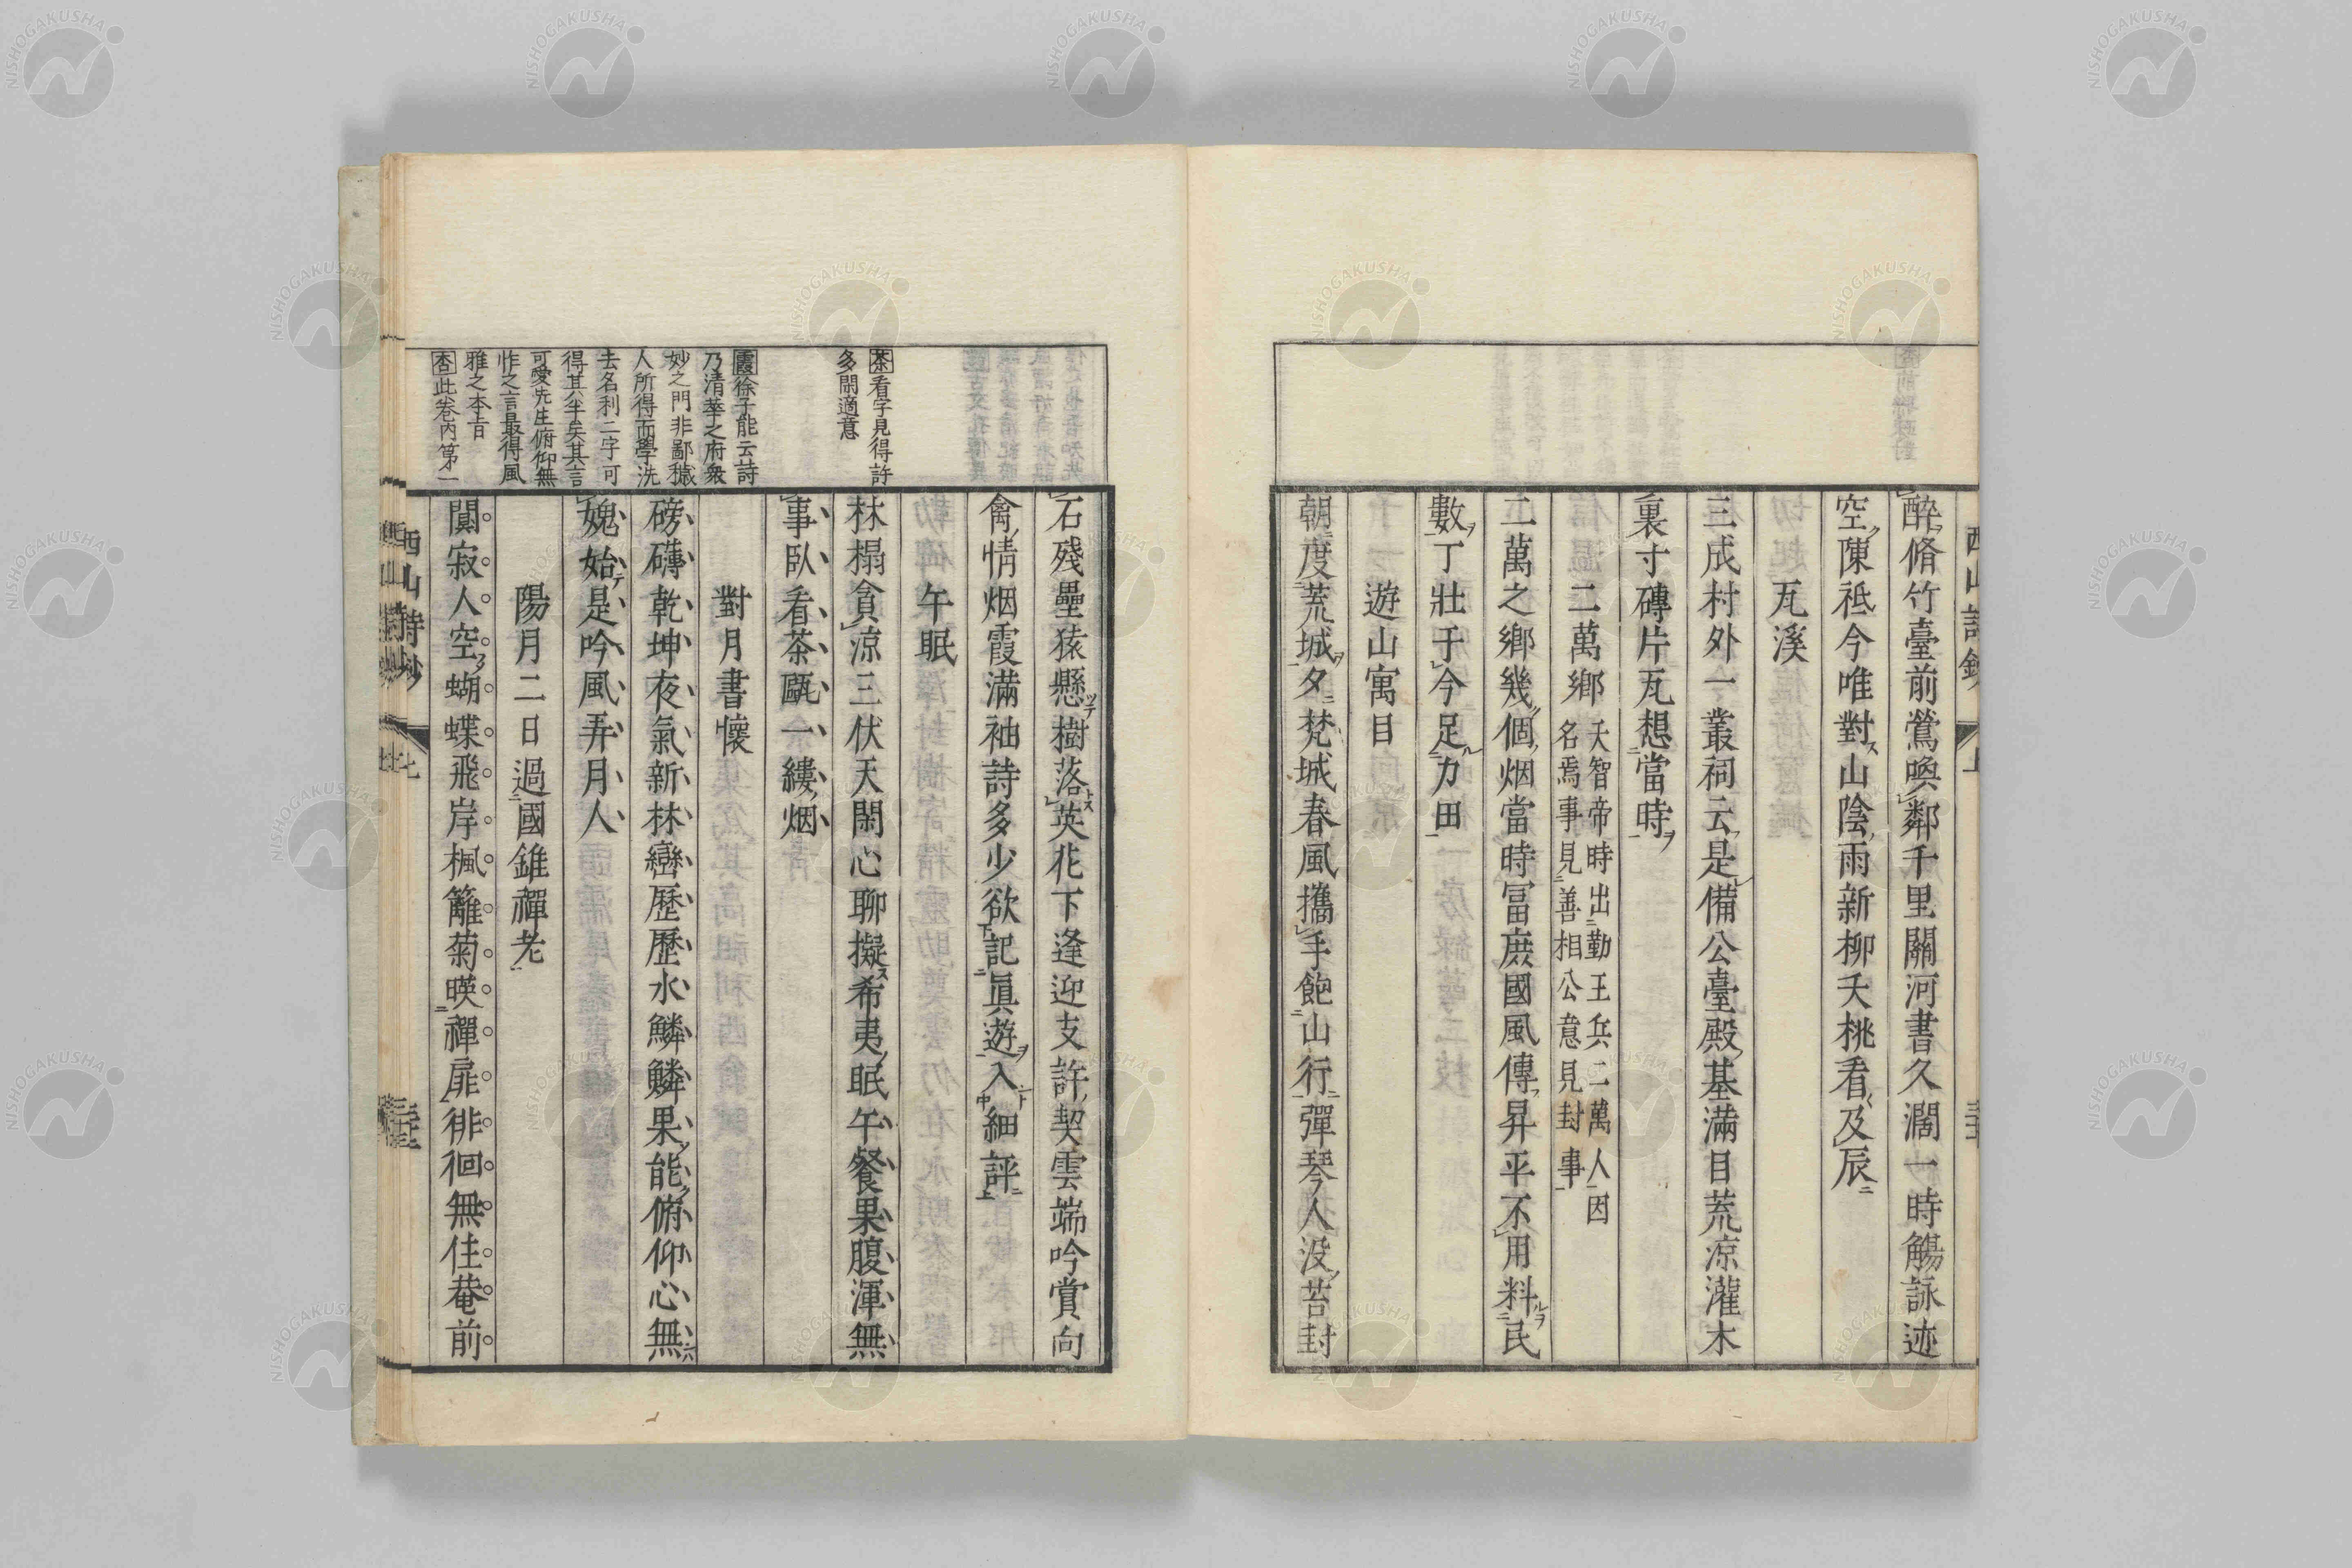 醉脩竹臺前鶯喚鄰千里關河書久濶一時觴詠迹
空陳祗今唯對山陰雨新柳夭桃看及辰
瓦溪
三成村外一叢祠云是備公臺殿基滿目荒凉灌木
裏寸磚片瓦想當時
二萬鄉
天智帝時出勤王兵二萬人因
名焉事見善相公意見封事
二萬之鄉幾個烟當時富庶國風傳昇平不用料民
數丁壯于今足力田
遊山寓目
朝度荒城夕梵城春風攜手飽山行彈琴人没苔封
石殘壘猿懸樹落英花下逢迎支許契雲端吟賞向
禽情烟霞滿袖詩多少欲記眞遊入細評
午眠
林榻貪凉三伏天閑心聊擬希夷眠午餐果腹渾無
事臥看茶甌一縷烟
對月書懷
磅礴乾坤夜氣新林巒歷歷水鱗鱗果能俯仰心無
媿始是吟風弄月人
陽月二日過國錐禪老
闃寂人空蝴蝶飛岸楓籬菊暎禪扉徘徊無住菴前
茶看字見得許
多閑適意
霞徐子能云詩
乃清華之府衆
妙之門非鄙穢
人所得而學洗
去名利二字可
得其半矣其言
可愛先生俯仰無
怍之言最得風
雅之本旨
杏此卷内第一
西山詩鈔
NISHOGAKUSHA